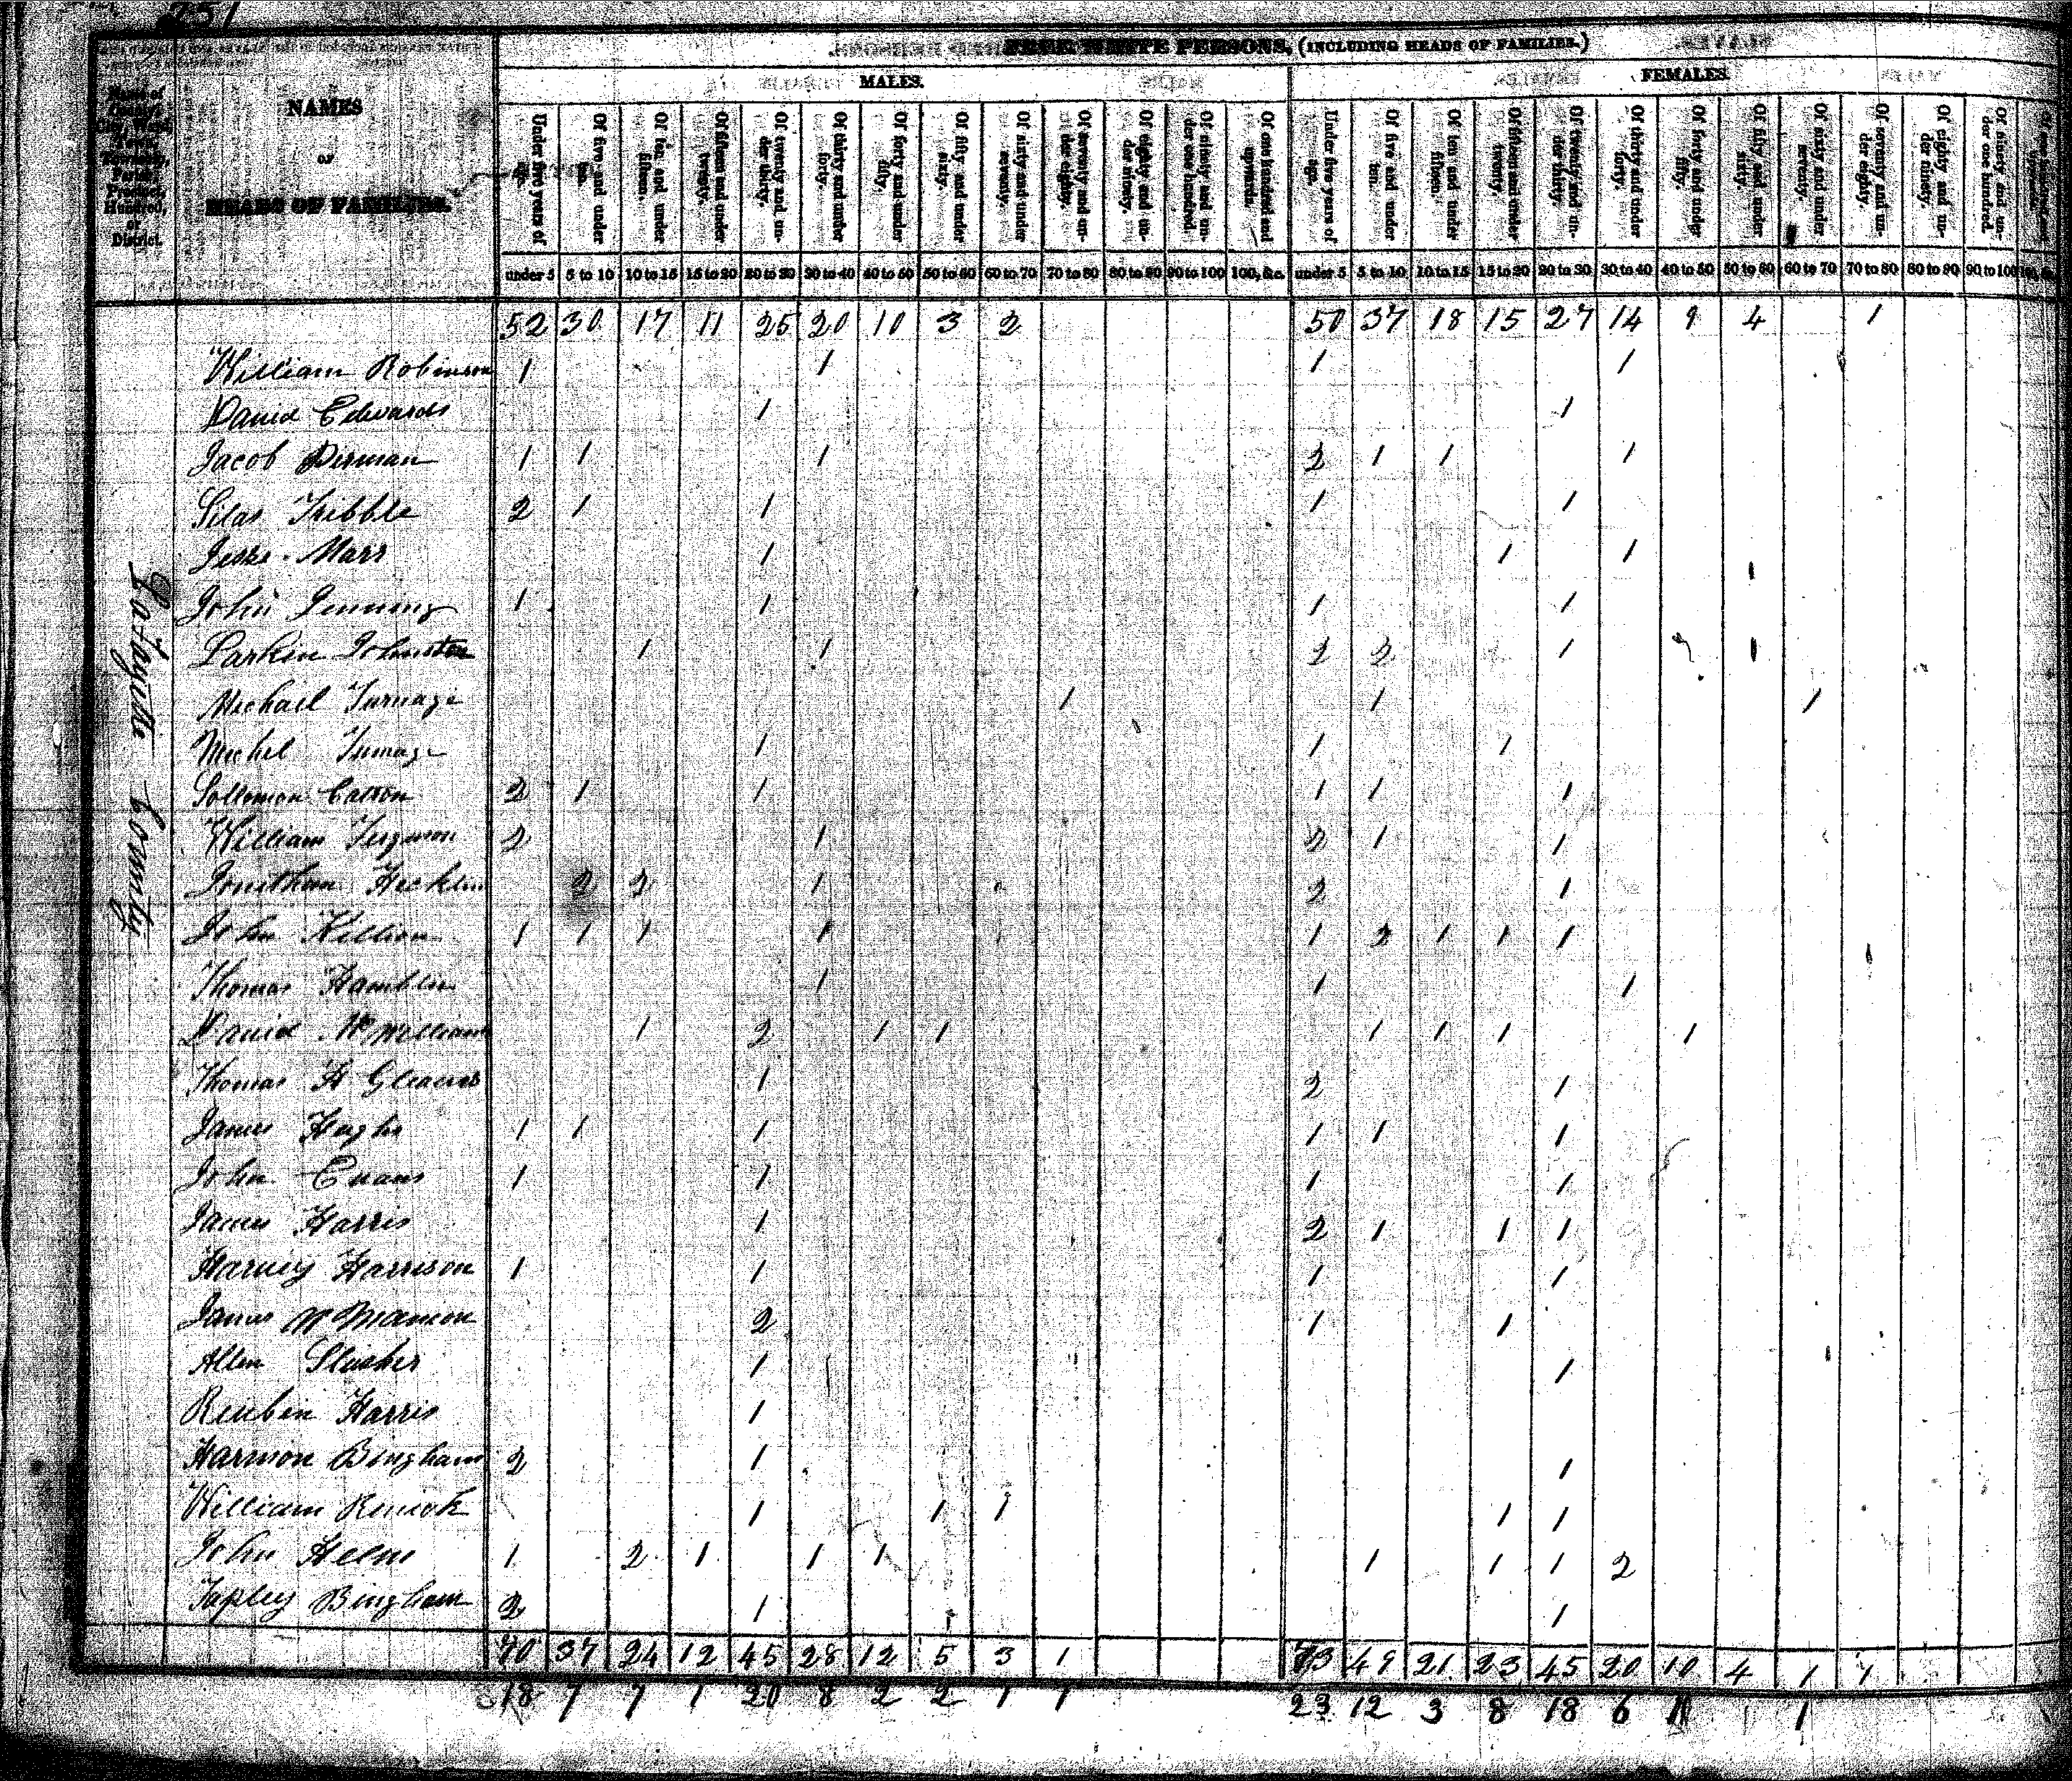 251
FREE WHITE PERSONS, (INCLUDING HEADS OF FAMILIES.)
MALES. FEMALES.
Name of County, City, Ward, Town, Township, Parish, Precinct, Hundred, or District.
NAMES
OF
HEADS OF FAMILIES.
Under five years of age. Of five and under ten. Of ten and under fifteen. Of fifteen and under twenty. Of twenty and under thirty. Of thirty and under forty. Of forty and under fifty. Of fifty and under sixty. Of sixty and under seventy. Of seventy and under eighty. Of eighty and under ninety. Of ninety and under one hundred. Of one hundred and upwards. Under five years of age. Of five and under ten. Of ten and under fifteen. Of fifteen and under twenty. Of twenty and under thirty. Of thirty and under forty. Of forty and under fifty. Of fifty and under sixty. Of sixty and under seventy. Of seventy and under eighty. Of eighty and under ninety. Of ninety and under one hundred.
under 5 5 to 10 10 to 15 15 to 20 20 to 30 30 to 40 40 to 50 50 to 60 60 to 70 70 to 80 80 to 90 90 to 100 100, &c. under 5 5 to 10 10 to 15 15 to 20 20 to 30 30 to 40 40 to 50 50 to 60 60 to 70 70 to 80 80 to 90 90 to 100
52 30 17 11 25 20 10 3 2 50 37 18 15 27 14 9 4 1
Lafayette County
William Robinson 1 1 1 1
David Edwards 1 1
Jacob Dirman 1 1 1 2 1 1 1
Silas Tribble 2 1 1 1 1
Jesse Marr 1 1 1
John Jenning 1 1 1 1
Larkin Johnston 1 1 2 2 1
Michail Turnage 1 1 1
Michel Turnage 1 1 1
Sollomon Catron 2 1 1 1 1 1
William Ferguson 2 1 2 1 1
Jonithan Hicklin 2 2 1 2 1
John Killion 1 1 1 1 1 2 1 1 1
Thomas Hamblin 1 1 1
David McWilliams 1 2 1 1 1 1 1 1
Thomas H Gleaves 1 2 1
James Hughs 1 1 1 1 1 1
John Evans 1 1 1 1
James Harris 1 2 1 1 1
Harvey Harrison 1 1 1 1
James McMamon 2 1 1
Allen Slusher 1 1
Reuben Harris 1
Harmon Bingham 2 1 1
William Renick 1 1 1 1 1
John Helm 1 2 1 1 1 1 1 1 2
Tapley Bingham 2 1 1
70 37 24 12 45 28 12 5 3 1 73 49 21 23 45 20 10 4 1 1
18 7 7 1 20 8 2 2 1 1 23 12 3 8 18 6 1 1